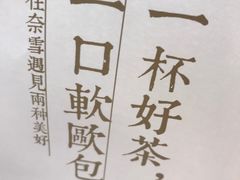 一杯好茶，
一口軟歐包
在奈雪遇見兩种美好